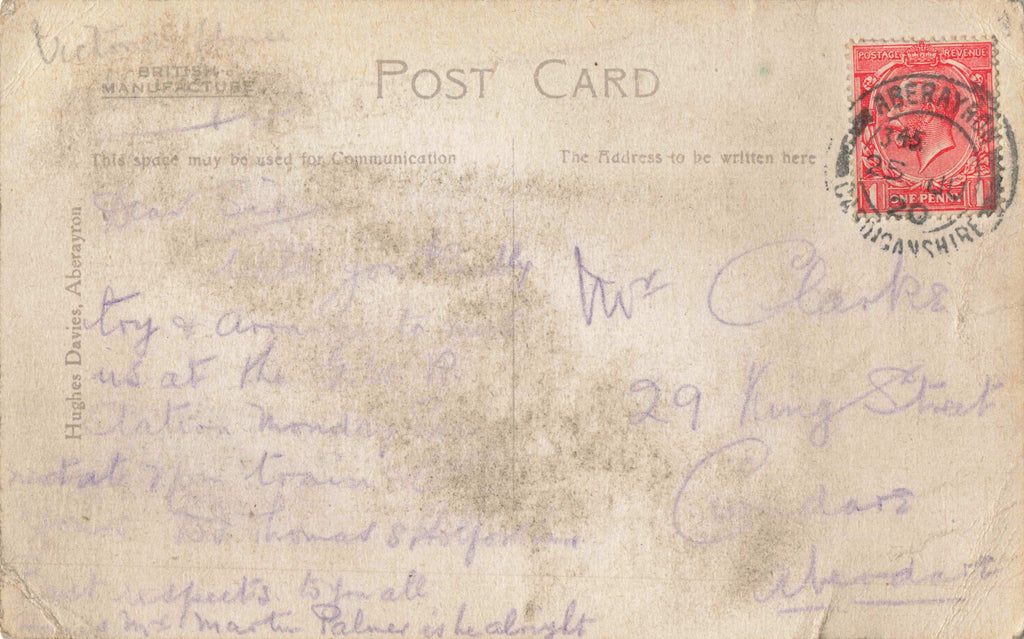 Victoria House
BRITISH
MANUFACTURE
POST CARD
This space may be used for Communication
The Address to be written here
POSTAGE REVENUE
1 ONE PENNY 1
ABERAYRON
3 45
25
20
CARDIGANSHIRE
Hughes Davies, Aberayron
Dear
Will you kindly
try & arrange to meet
us at the G.W.R.
Station Monday
at 7pm train
Thomas
respects to you all
Mr Martin Palmer is he alright
Mr Clarke
29 King Street
Cwmdare
Aberdare